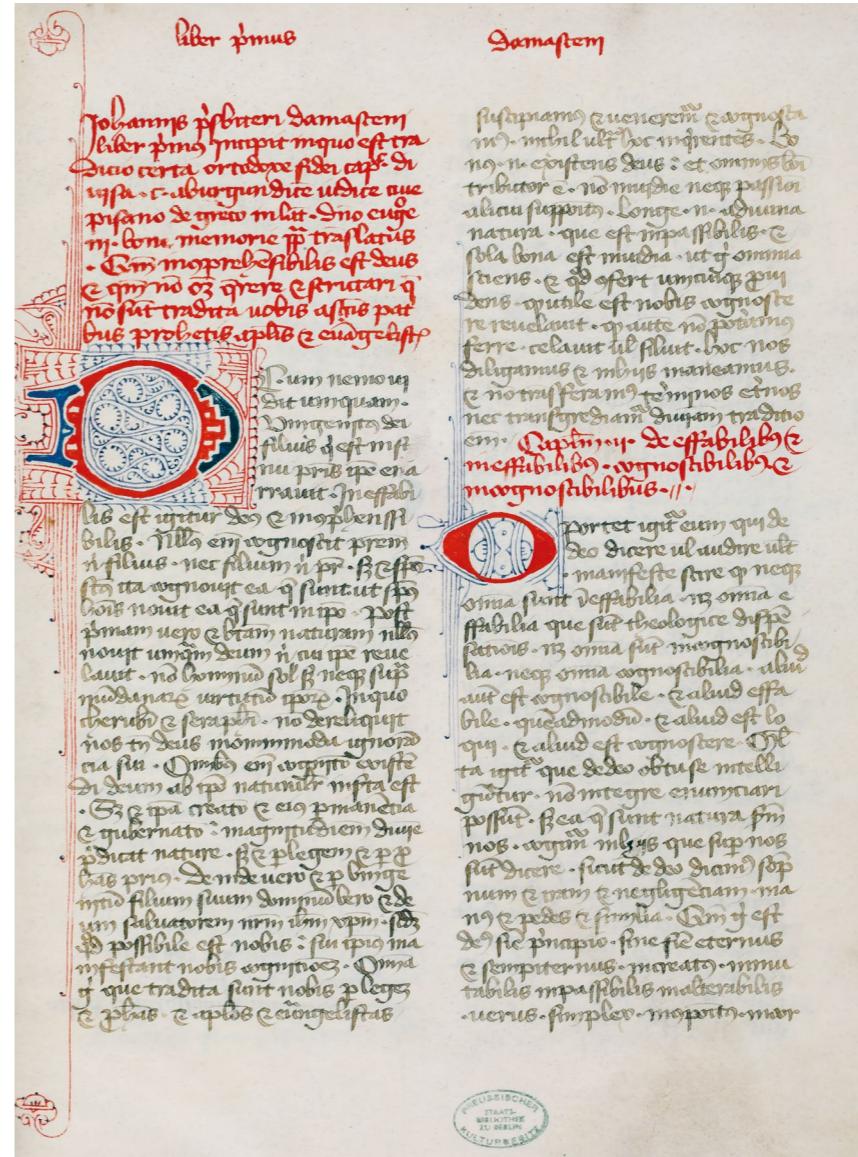 liber p̄mus
damasceni
Johannis p̄sbiteri damasceni
liber p̄mus incipit in quo est tra
dicio certa ortodoxe fidei cap. di
uisa .c. a burgundice iudice ciue
pisano de greco in lat. dn̄o euge
nii. bone memorie pp̄ traslatus
. Qm̄ inco̅prehēsibilis est deus
& qm̄ nō oꝫ q̄rere & scrutari q̄
nō sūt tradita nobis a sc̄is pat
bus prophetis ap̄lis & euāgelist
Eum nemo ui
dit umquam.
Unigenitus dei
filius q̄ est in si
nu pris ip̄e ena
rrauit. Ineffabi
lis est igitur deꝰ & inco̅p̄hensi
bilis. Nullꝰ em̄ cognoscit prem
n̄ filius. nec filium n̄ pr̄. Sꝫ & sp̄s
sc̄tꝰ ita cognouit ea q̄ sunt. ut sp̄s
hoīs nouit ea q̄ sunt in ip̄o. Post
p̄mam uero & btām naturam nullꝰ
nouit umqm̄ deum n̄ cui ip̄e reue
lauit. nō hominū sol' sꝫ neq sup̄
mūdanarꝫ uirtutū ip̄orꝫ. Inquo
cherubī & seraphī. nō dereliquit
nos tn̄ deus in om̄immoda ignorā
cia sui. Omībꝰ em̄ cognitō existē
di deum ab ip̄o naturalr̄ insita est
. Sꝫ & ip̄a creatō & eiꝰ p̄manētia
& gubernatō : magnitudiem diuīe
p̄dicat nature. Sꝫ & p̄ legem & p̄ p̄
has priꝰ. Deinde uero & p̄ unige
nitū filium suum dominū uero & de
um saluatorem nr̄m ih̄m xp̄m. scdꝫ
qd̄ possibile est nobis : sui ip̄iꝰ ma
nifestant nobis cognitioeꝫ. Om̄ia
g̊ que tradita sunt nobis p̄ legeꝫ
& p̄has & ap̄los & euāngelistas
suscipiamꝰ & uenerem̄ & cognosca
mꝰ. nichil ult̄ hoc inq̄rentes. Bo
nꝰ .n. existens deus : et omnis boī
tributor ē. nō inuidie neq passioī
alicui suppoitꝰ. Longe .n. a diuina
natura. que est inpassibilis. &
sola bona est inuidia. ut g̊ omnia
sciens. & qd̄ cōfert unicuiq p̄ui
dens. q̄ utile est nobis cognosce
re reuelauit. q̄ aute nō potamꝰ
ferre. celauit ul' siluit. hoc nos
diligamus & in hiis maneamus.
& nō trasferamꝰ tèminos etnos
nec transgrediam̄ diuinam traditio
em. Caplm̄ .ii. de effabilibꝰ &
ineffabilibꝰ. cognoscibilibꝰ &
incognoscibilibus. //.
Oportet igit̄ eum qui de
deo dicere ul' audire ult̄
manifeste scire q̄ neq
om̄ia sunt ineffabilia. nꝫ om̄ia e
ffabilia que sūt theologice dispē
sationis. nꝫ om̄ia sūt incognoscibi
lia. neq om̄ia cognoscibilia. aliud
aut est cognoscibile. & aliud effa
bile. queadmodū. & aliud est lo
qui. & aliud est cognoscere. Ml'
ta igit̄ que de deo obtuse intelli
gūtur. nō integre enunciari
possūt. Sꝫ ea q̄ sunt natura sm̄
nos. cogim̄ in hiis que sup nos
sūt dicere. sicut de deo dicimꝰ sop
num & iram & negligēciam. ma
nꝰ & pedes & similia. Qm̄ g̊ est
deꝰ sīe p̄ncipio. sine fīe eternus
& sempiternus. increatꝰ. inmu
tabilis inpassibilis inalterabilis
. uerus. simplex. inco̅poitꝰ. incor
PREUSSISCHER
STAATS-
BIBLIOTHEK
ZU BERLIN
KULTURBESITZ